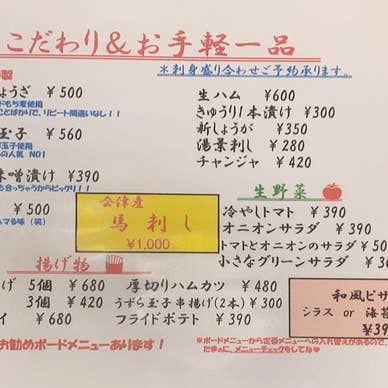 こだわり＆お手軽一品
製
＊刺身盛り合わせご予約承ります。
ょうざ ￥500
ドもち麦使用
ことばかりで、リピート間違いなし！！
玉子 ￥560
玉子使用
の人気 NO1
味噌漬け ￥390
も合っちゃうからビックリ！！
￥500
マる味（笑）
生ハム ￥600
きゅうり1本漬け ￥300
新しょうが ￥350
湯葉刺し ￥280
チャンジャ ￥420
会津産
馬刺し
￥1,000
生野菜
冷やしトマト ￥390
オニオンサラダ ￥390
トマトとオニオンのサラダ ￥50
小さなグリーンサラダ ￥30
揚げ物
げ 5個 ￥680
3個 ￥420
イ ￥680
厚切りハムカツ ￥480
うずら玉子串揚げ(2本) ￥300
フライドポテト ￥390
和風ピザ
シラス or 海苔
￥39
お勧めボードメニューあります！
＊ボードメニューから定番メニューへの入れ替えがあるので、
たまぁに、メニューチェックをしてね♥